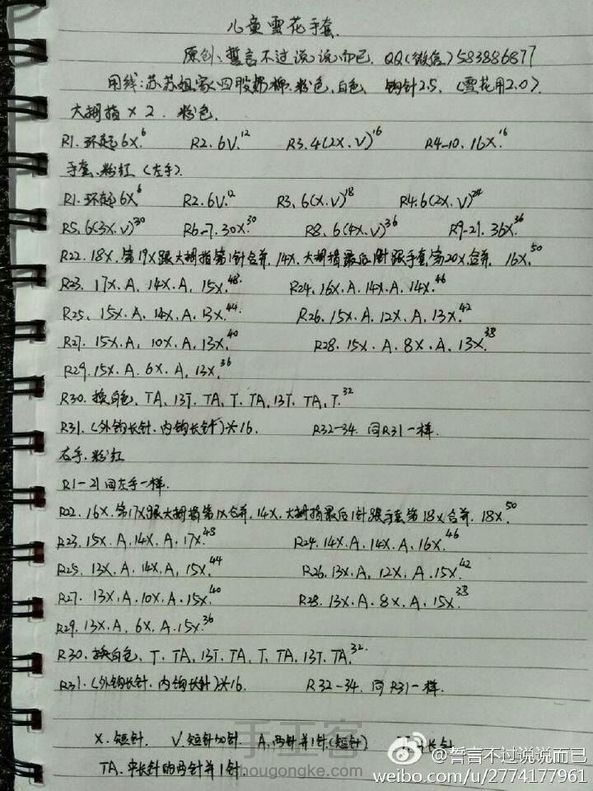 儿童雪花手套.
原创: 誓言不过说说而已. QQ(微信)583886877
用线: 苏苏姐家四股奶棉. 粉色, 白色. 钩针2.5. (雪花用2.0).
大拇指×2. 粉色.
R1. 环起6X.⁶ R2. 6V.¹² R3. 4(2X. V)¹⁶ R4-10. 16X.¹⁶
手套. 粉红 (左手).
R1. 环起6X⁶ R2. 6V.¹² R3. 6(X. V)¹⁸ R4. 6(2X. V)²⁴
R5. 6(3X. V)³⁰ R6-7. 30X.³⁰ R8. 6(4X. V)³⁶ R9-21. 36X.³⁶
R22. 18X. 第19X跟大拇指第1针合并, 14X. 大拇指最后1针跟手套第20X合并, 16X.⁵⁰
R23. 17X. A. 14X. A, 15X.⁴⁸ R24. 16X. A. 14X. A. 14X.⁴⁶
R25. 15X. A. 14X. A, 13X.⁴⁴ R26. 15X. A. 12X. A, 13X.⁴²
R27. 15X. A, 10X. A, 13X.⁴⁰ R28. 15X. A. 8X. A, 13X.³⁸
R29. 15X. A. 6X. A, 13X.³⁶
R30. 换白色, TA, 13T. TA, T. TA, 13T. TA, T.³²
R31. (外钩长针. 内钩长针)×16. R32-34. 同R31一样.
右手. 粉红
R1-21同左手一样.
R22. 16X. 第17X跟大拇指第1X合并, 14X. 大拇指最后1针跟手套第18X合并, 18X.⁵⁰
R23. 15X. A. 14X. A. 17X.⁴⁸ R24. 14X. A. 14X. A. 16X.⁴⁶
R25. 13X. A. 14X. A, 15X.⁴⁴ R26. 13X. A, 12X. A. 15X.⁴²
R27. 13X. A. 10X. A. 15X.⁴⁰ R28. 13X. A. 8X. A, 15X.³⁸
R29. 13X. A, 6X. A. 15X.³⁶
R30. 换白色, T. TA, 13T. TA, T, TA, 13T. TA.³²
R31. (外钩长针. 内钩长针)×16. R32-34. 同R31一样.
X. 短针. V. 短针加针. A. 两针并1针(短针) 长针
TA. 中长针的两针并1针
手工客
hougongke.com
@誓言不过说说而已
weibo.com/u/2774177961